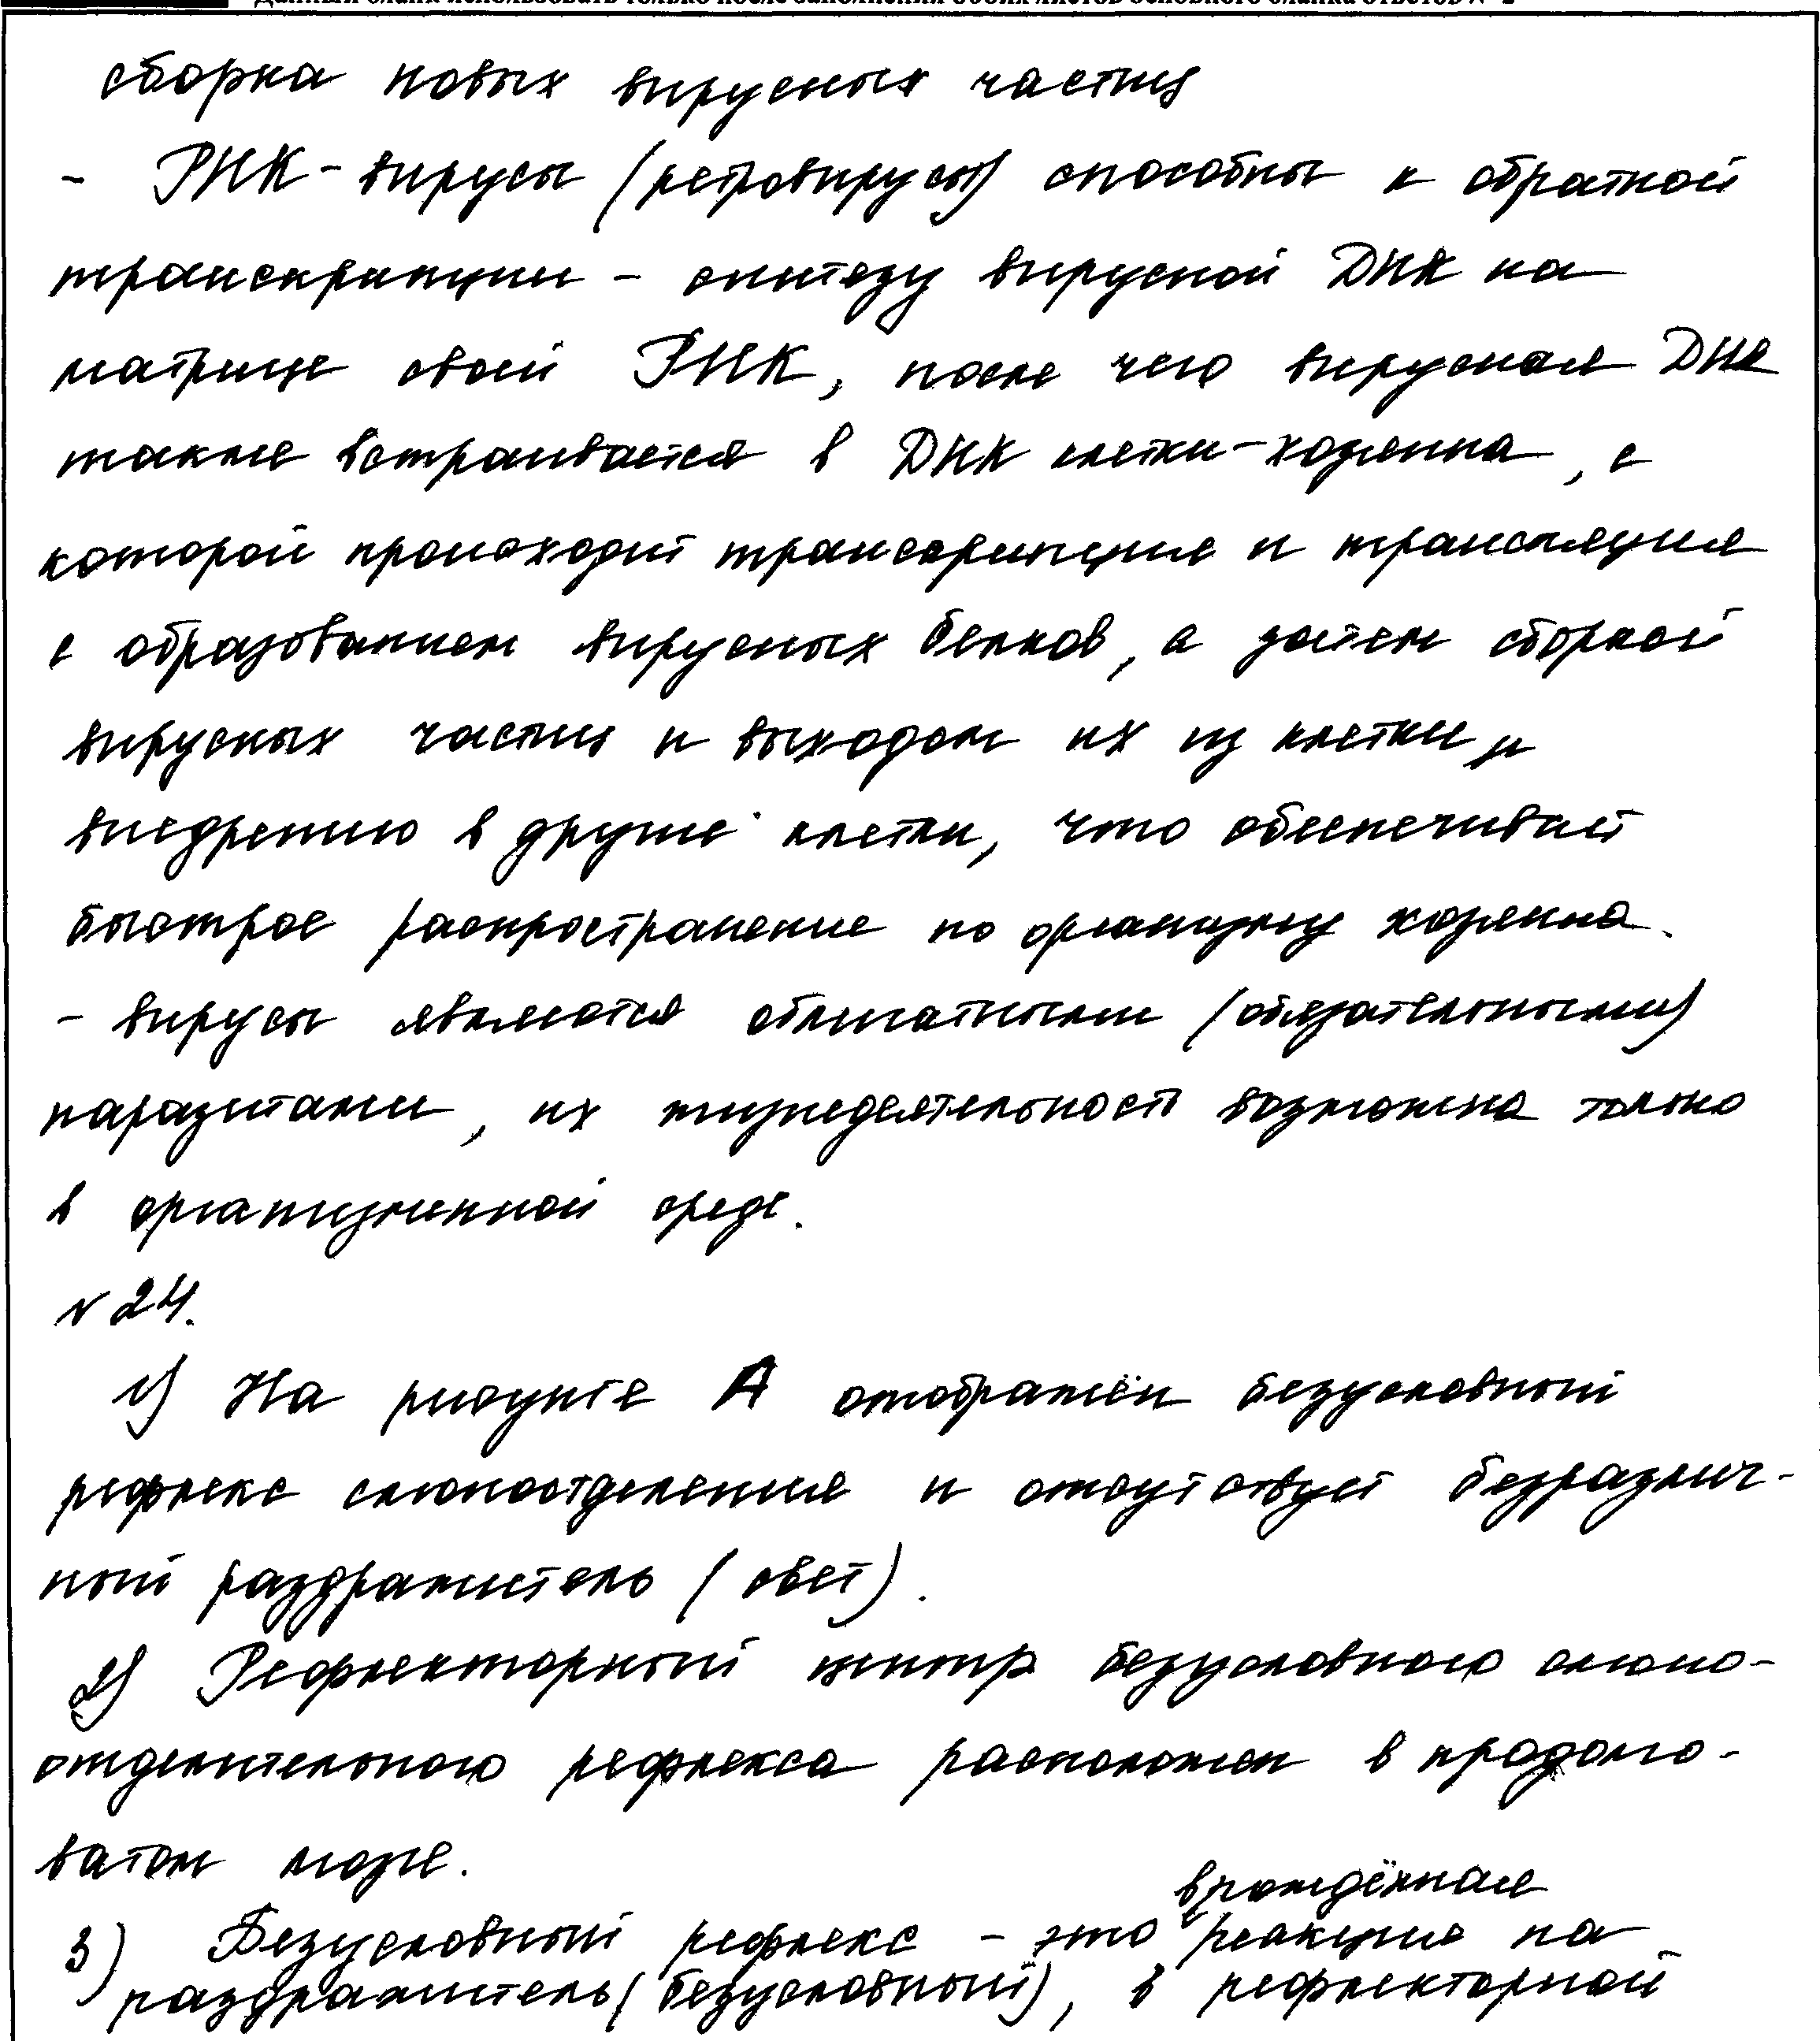 Данный бланк использовать только после заполнения обоих листов основного бланка ответов № 2
сборка новых вирусных частиц
- РНК-вирусы (ретровирусы) способны к обратной
транскрипции - синтезу вирусной ДНК на
матрице своей РНК, после чего вирусная ДНК
также встраивается в ДНК клетки-хозяина, с
которой происходит транскрипция и трансляция
с образованием вирусных белков, а затем сборкой
вирусных частиц и выходом их из клетки и
внедрению в другие клетки, что обеспечивает
быстрое распространение по организму хозяина.
- вирусы являются облигатными (обязательными)
паразитами, их жизнедеятельность возможна только
в организменной среде.
№ 24.
1) На рисунке А отображён безусловный
рефлекс слюноотделения и отсутствует безразлич-
ный раздражитель (свет).
2) Рефлекторный центр безусловного слюно-
отделительного рефлекса расположен в продолго-
ватом мозге.
врождённая
3) Безусловный рефлекс - это реакция на
раздражитель (безусловный), в рефлекторной